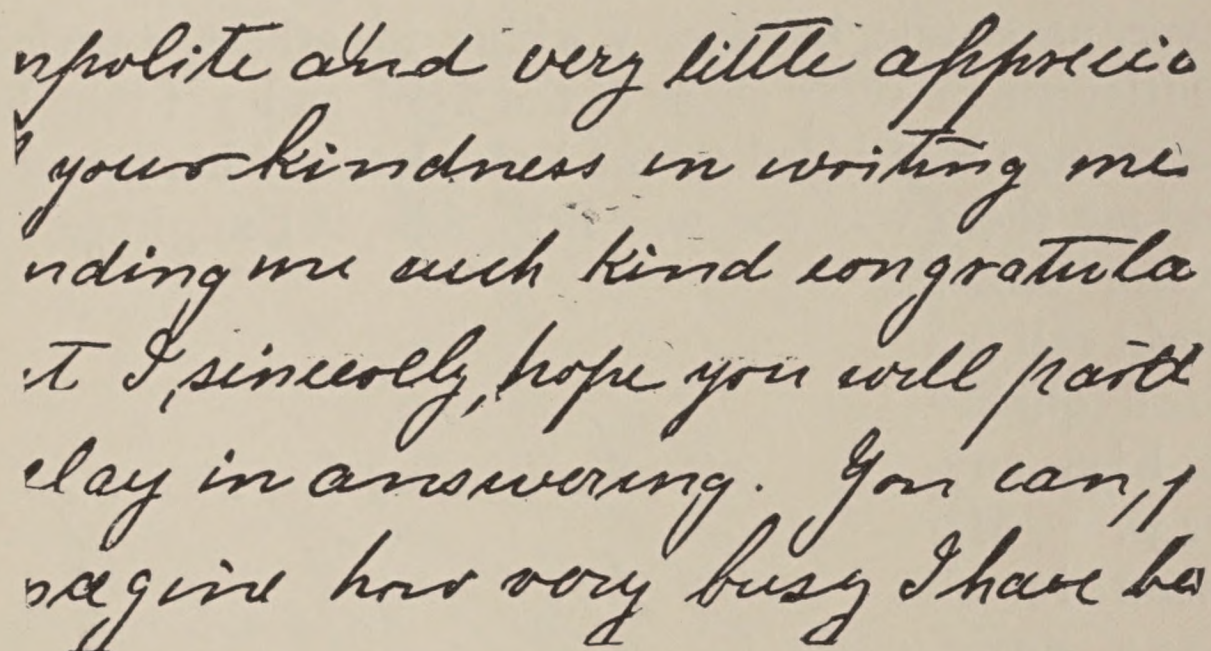 npolite and very little apprecia
your kindness in writing me
nding me such kind congratula
t I, sincerelly, hope you will pard
elay in answering. You can, p
magine how very busy I have be